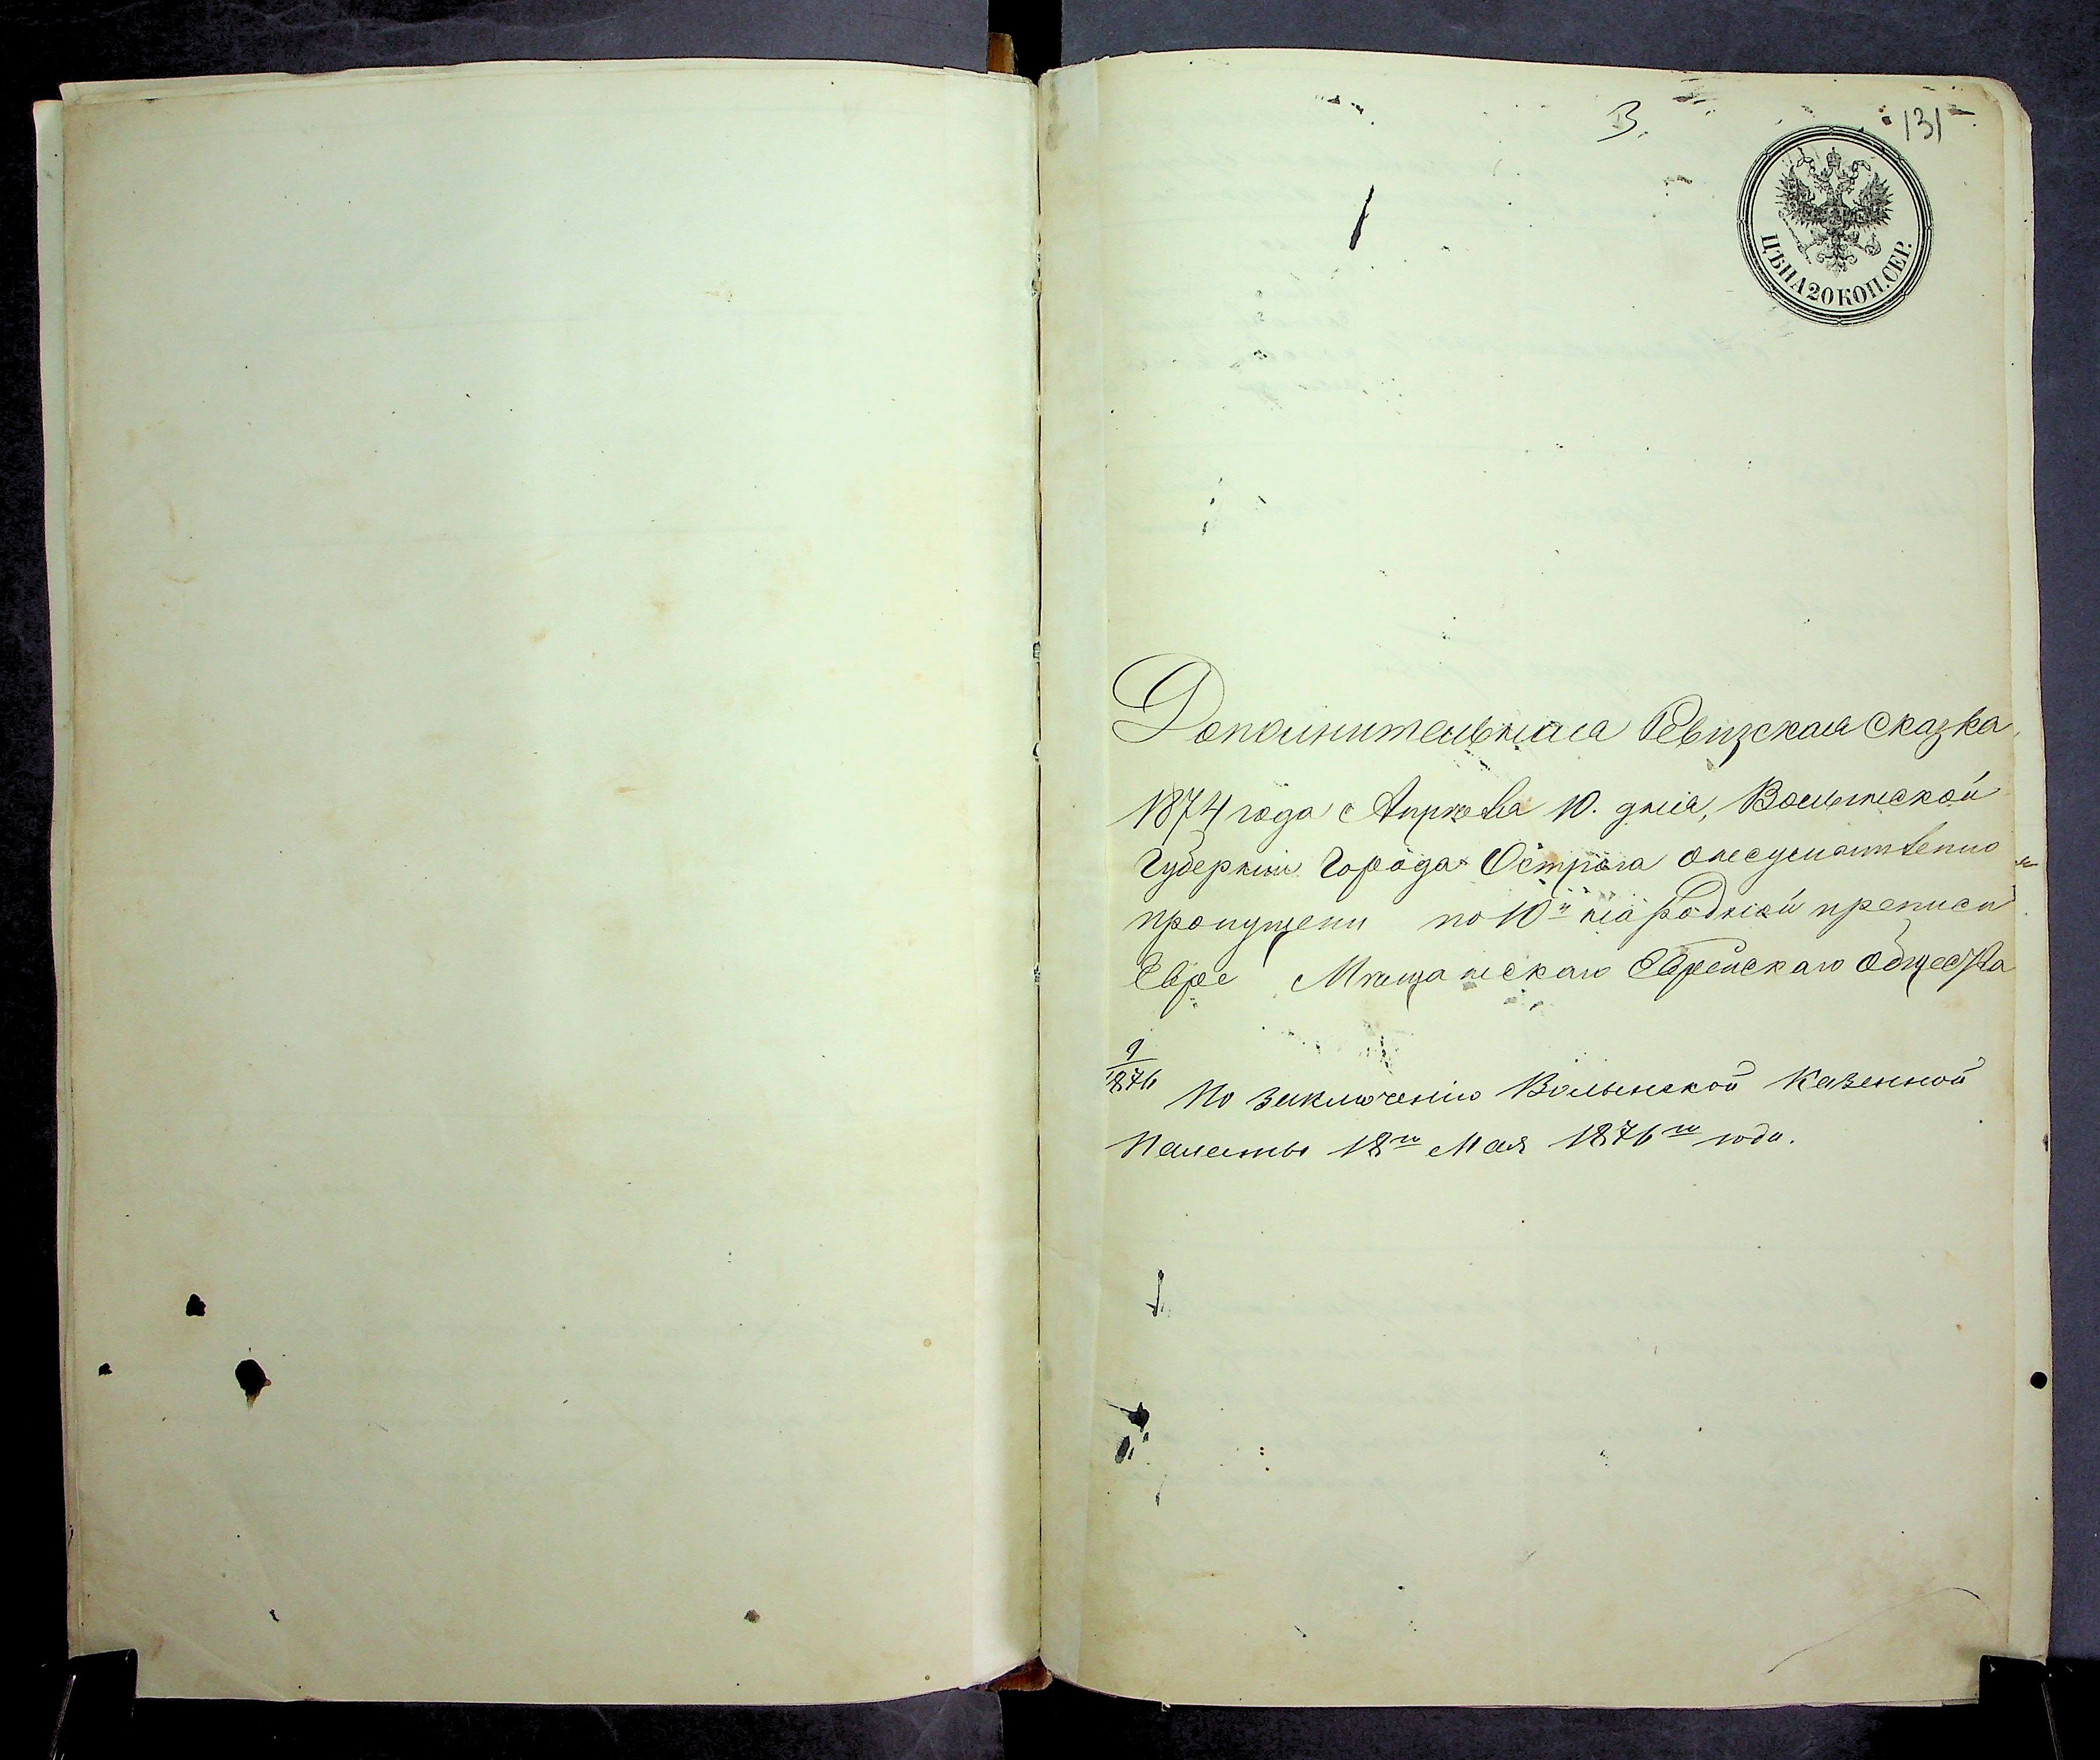 3.
131
ЦѢНА 20 КОП. СЕР.
Дополнительная Ревизская Сказка,
1874 года Апреля 10. дня, Волынской
Губернии Города Острога о
пропущени по 10й народной преписи
Евре Мещанскаго Еврейскаго Общества
9/1876 По заключенію Волынской Казенной
Палаты 18го Мая 1876го года.